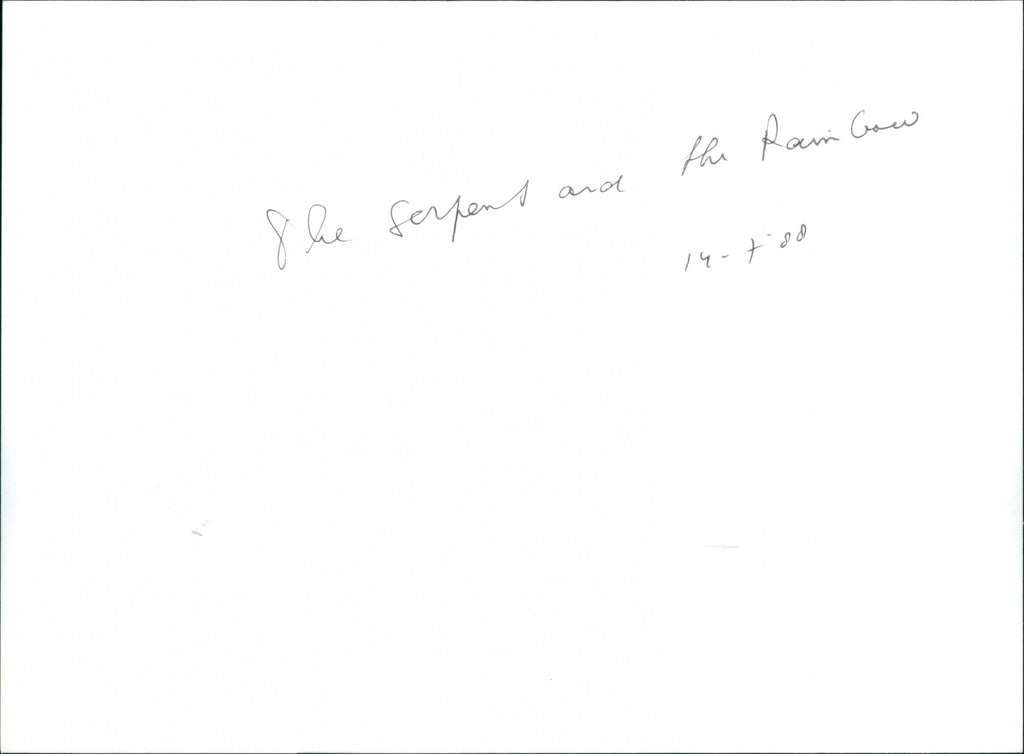 The Serpent and the Rainbow
14-7-88